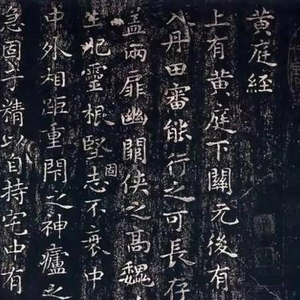 黄庭經
上有黄庭下關元後有
入丹田審能行之可長存
蓋兩扉幽闕俠之高巍
生肥靈根堅固志不衰中
中外相距重閇之神廬之
急固子精以自持宅中有